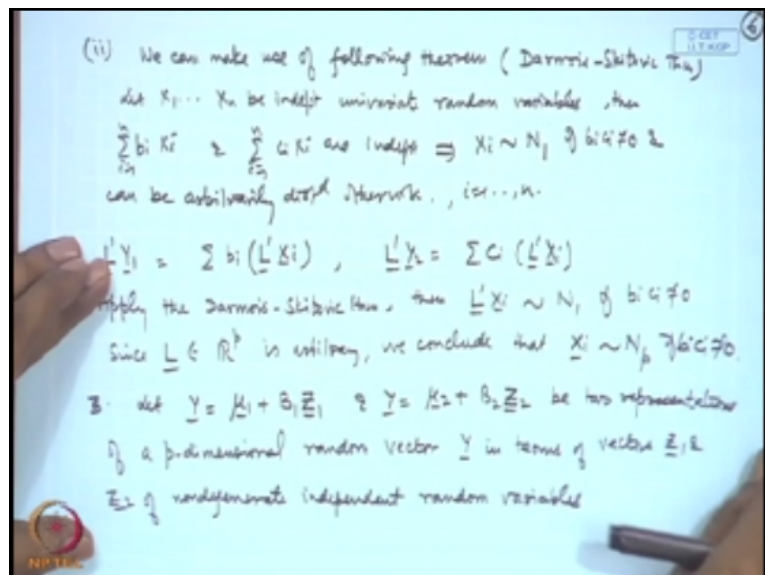 6
C CET
I.I.T. KGP
(ii) We can make use of following theorem (Darmois-Skitovic Thm)
Let X₁ ... Xₙ be indept univariate random variables, then
∑ᵢ₌₁ⁿ bᵢ Xᵢ & ∑ᵢ₌₁ⁿ cᵢ Xᵢ are indept ⇒ Xᵢ ~ N₁ if bᵢcᵢ≠0 &
can be arbitrarily distd otherwise, i=1,...,n.
L'Y₁ = ∑ bᵢ (L'Xᵢ), L'Y₂ = ∑ cᵢ (L'Xᵢ)
Apply the Darmois-Skitovic thm, then L'Xᵢ ~ N₁ if bᵢcᵢ≠0
Since L ∈ ℝᵖ is arbitrary, we conclude that Xᵢ ~ Nₚ if bᵢcᵢ≠0.
3. Let Y = μ₁ + B₁Z₁ & Y = μ₂ + B₂Z₂ be two representations
of a p-dimensional random vector Y in terms of vectors Z₁ &
Z₂ of nondegenerate independent random variables
NPTEL